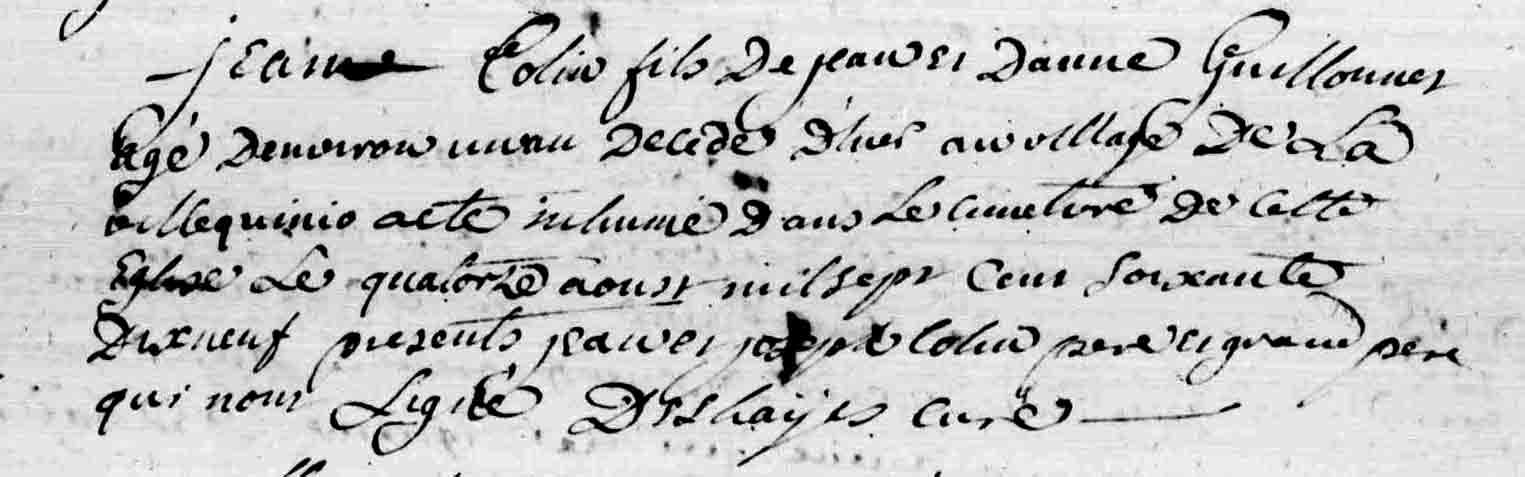 jean Colin fils De jean et Danne Guillouuet
agé Denviron un an Decedé D'hier au village De La
villequinio a eté inhumé Dans Le cimetire De Cette
Eglise Le quatorze aoust mil sept Cent Soixante
Dixneuf presents jean et joseph Colin pere et grand pere
qui nont Signé Deshayes curé